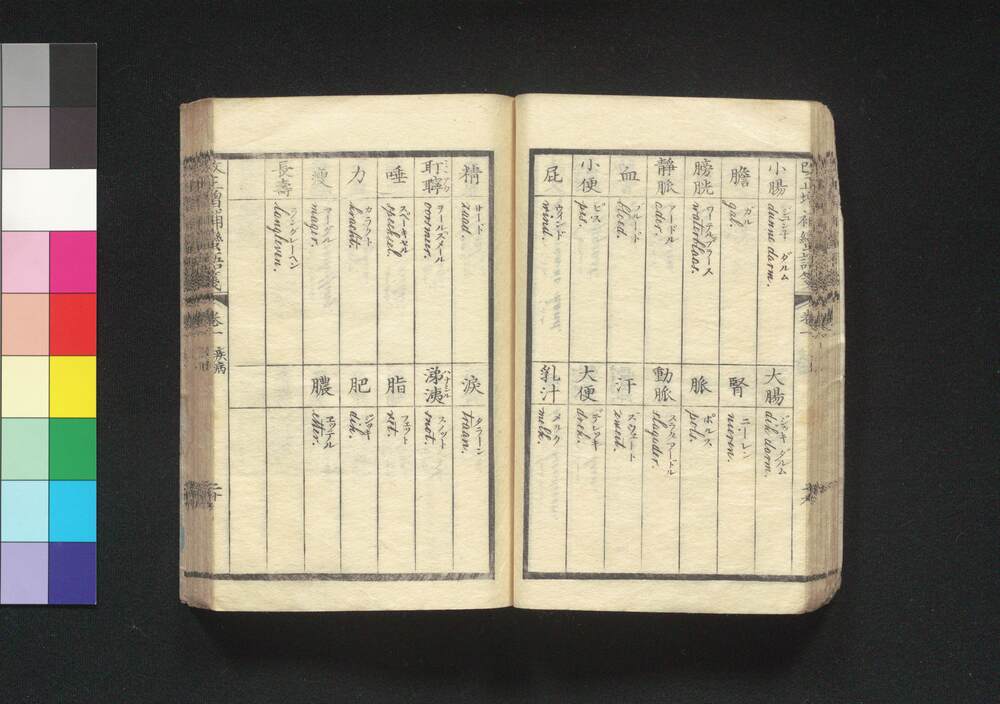 小腸
ヂュンネ ダルム
dunne darm.
膽
ガル
gal.
膀胱
ワーテルブラース
waterblaas.
靜脈
アーデル
ader.
血
ブルード
bloed.
小便
ピス
pis.
屁
ウィンド
wind.
大腸
ヂッキ ダルム
dik darm.
腎
ニーレン
nieren.
脈
ポルス
pols.
動脈
スラグアードル
slagader.
汗
スウェート
zweet.
大便
ドレッキ
drek.
乳汁
メルク
melk.
精
サード
zaad.
耵聹
ヲールスメール
oorsmeer.
唾
スペーキセル
speeksel.
力
カラフト
kracht.
瘦
マーグル
mager.
長壽
ラングレーヘン
langleven.
淚
タラーン
traan.
涕洟
スノット
snot.
脂
フェット
vet.
肥
ヂッキ
dik.
膿
エッテル
etter.
改正增補蠻語箋
卷一
疾病
二十